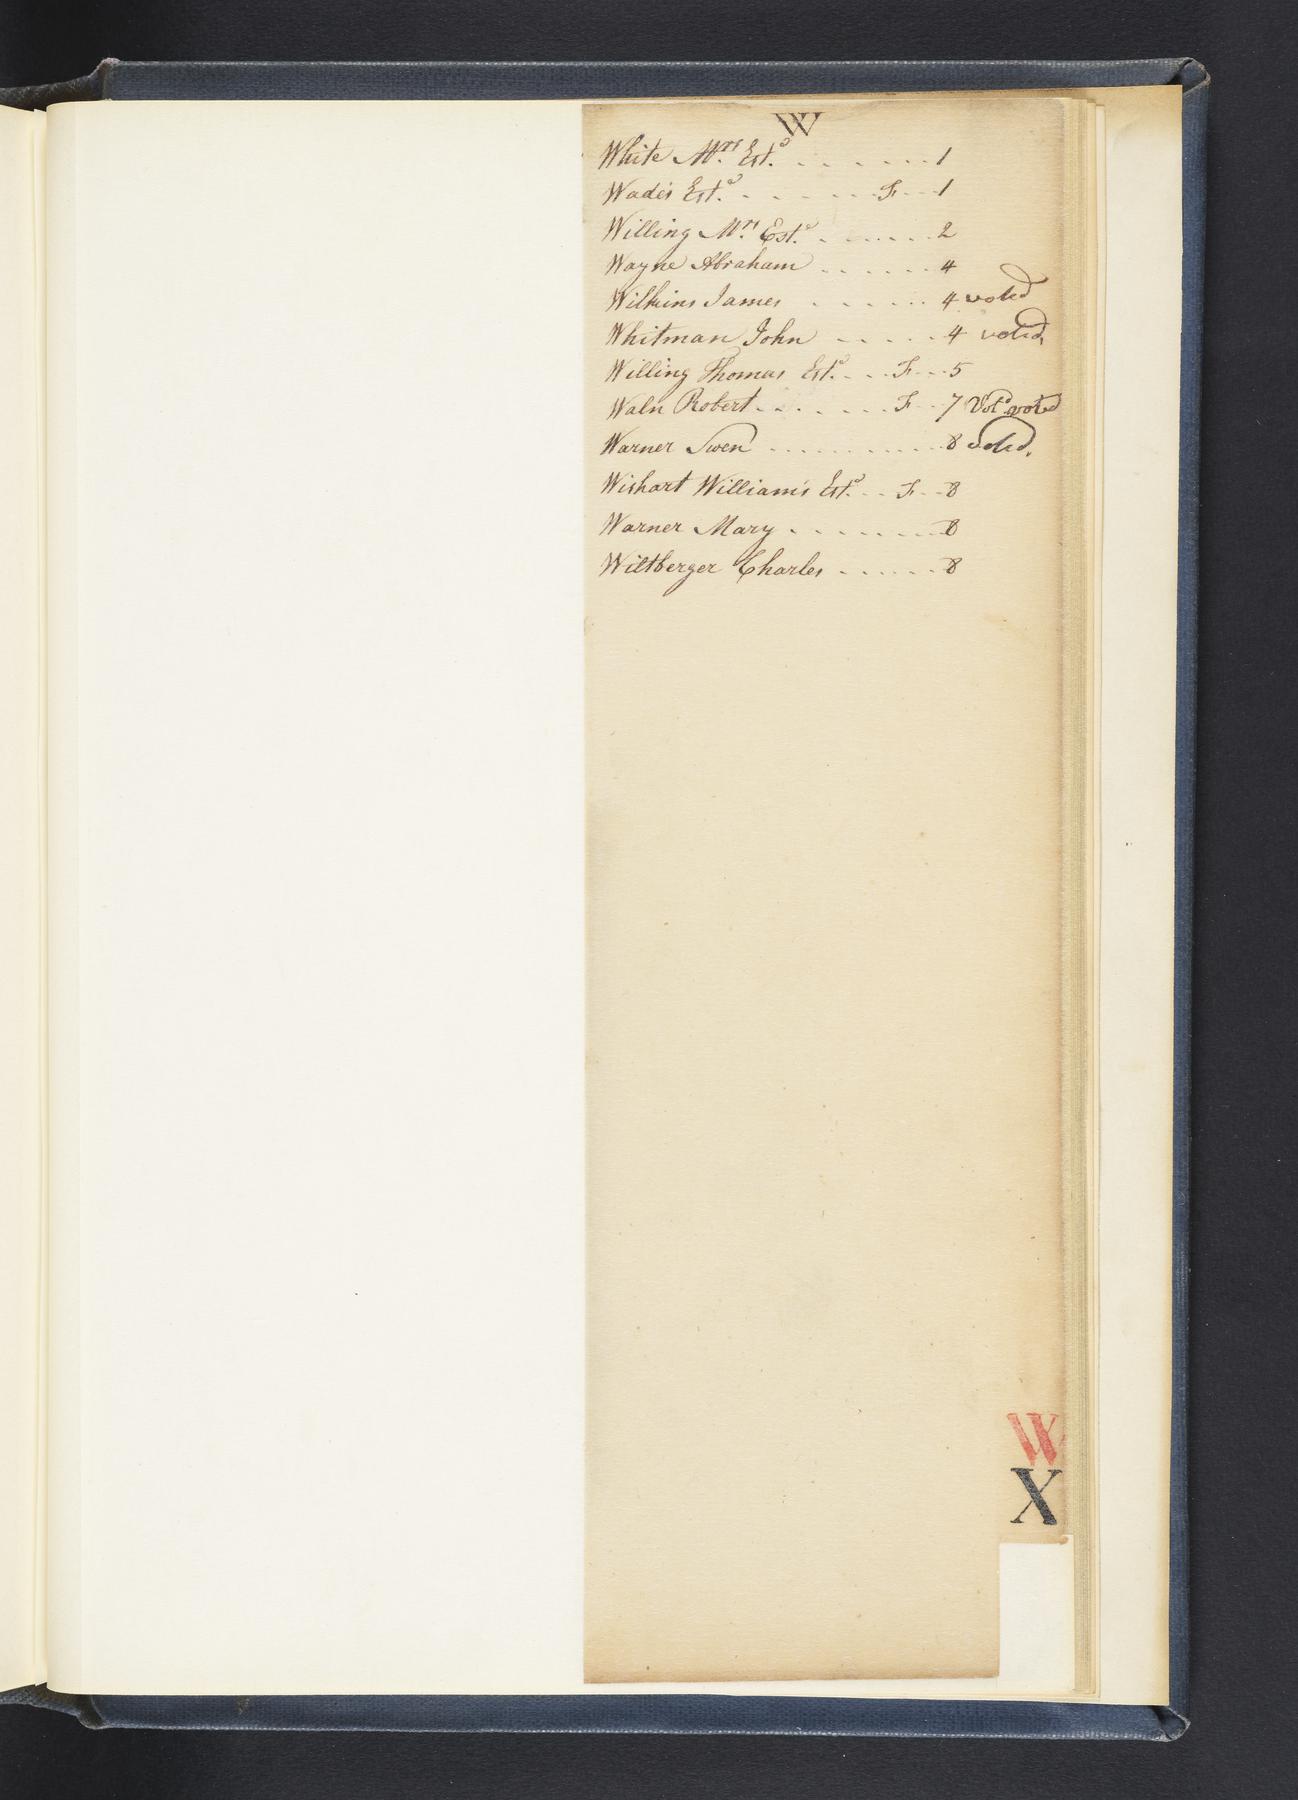 W
White Mrs. Est.e . . . . . . . 1
Wade's Est.e . . . . . . F . . 1
Willing Mrs. Est.e . . . . . . 2
Wayne Abraham . . . . . . 4
Wilkins James . . . . . . 4 voted
Whitman John . . . . . 4 voted.
Willing Thomas Est.e . . F . . 5
Waln Robert . . . . . . F . . 7 Votd voted
Warner Swen . . . . . . . . . . 8 voted.
Wishart William's Est.e . . F . . 8
Warner Mary . . . . . . . . 8
Wiltberger Charles . . . . . . 8
W
X